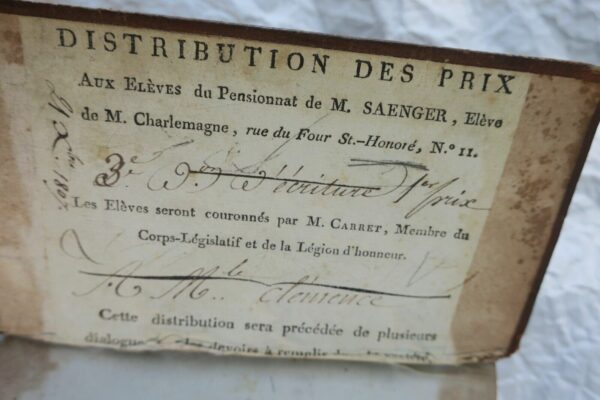 DISTRIBUTION DES PRIX
AUX ELÈVES du Pensionnat de M. SAENGER, Elève
de M. Charlemagne, rue du Four St.-Honoré, N.º 11.
3.e d'écriture 1er prix
Les Elèves seront couronnés par M. CARRET, Membre du
Corps-Législatif et de la Légion d'honneur.
A M.lle clémence
Cette distribution sera précédée de plusieurs
dialogue des devoirs à remplir dans la société